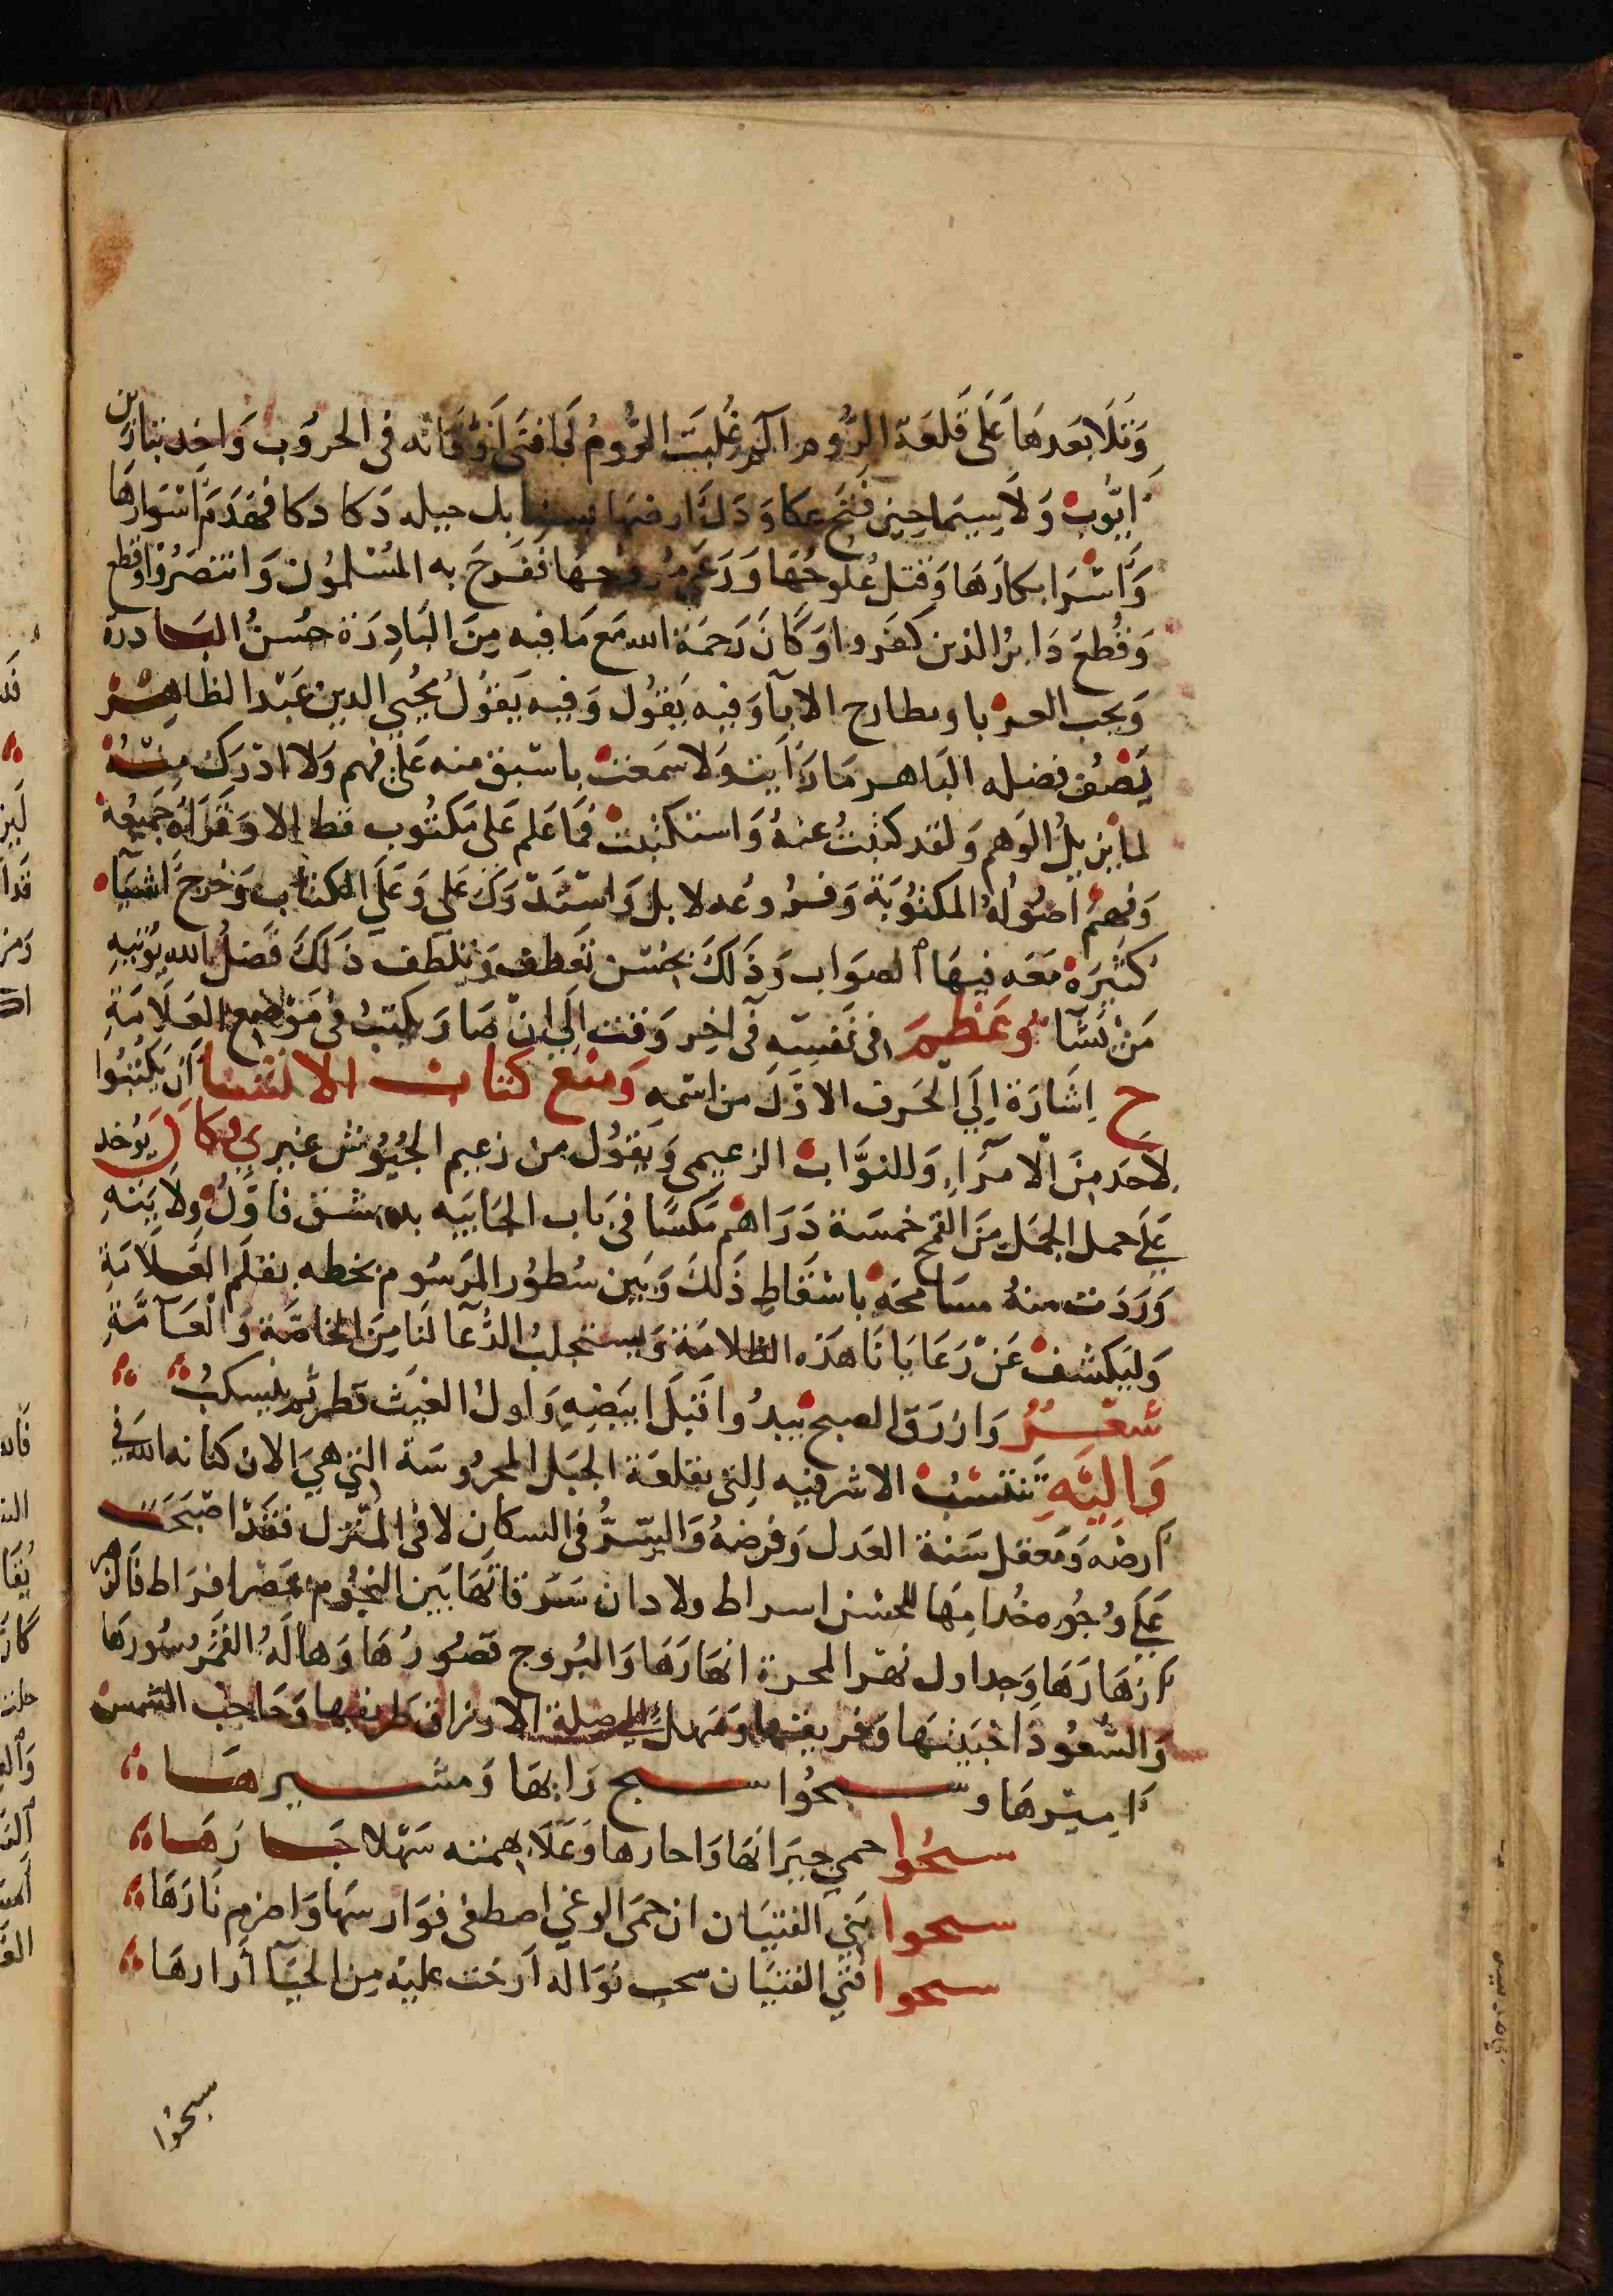 وَتَلَا بَعدهَا عَلَى قَلعَة الرُّوم الم غُلبَت الرُّومُ لَمَا فتَى اَوْقَاتَه فى الحروُب وَاخد بثار بن
ايُّوب وَلَا سِيَمَا حِين فَتَح عكا وَدَكّ ارضهَا بل جبيله دَكا دكا فهَدَم اسْوَارهَا
وَاسْرَ ابكارَهَا وَقتل عُلوجُهَا وَرَعَى مُروُجهَا فَفَرحَ به المُسْلموُن وَانتصَرُوْا وقطع
وَقُطِعَ دَابرُ الذين كَفَروا وَكانَ رَحمَة الله مَع مَا فيه مِنَ البَادِرَة حسْنُ البَــادرة
وَيحب العــر با ومطارح الاباَ وَفيه يَقوُل وَفيه يَقوُلُ مُحْيي الدين عَبْد الظاهِــر
يَصُف فضله البَاهــر مَا رَاَيت وَلا سَمعت باسْبق منه عَلَى فهم وَلا ادْرَكَ منْــهُ
لما يزيلُ الوَهم وَلقد كتبتُ عنهُ وَاستكتبْت فمَا عَلم عَلى مَكتُوب قط الا وَقرَاهُ جَميْعهُ
وَفهمَ اصُوُلهُ المكتوُبَة وَفروُعه لا بل وَاسْتَدْرَكَ عَلي وَعَلَي الكتاب وَخرج اشيَاء
كثيَرة مَعَه فيهَا الصوَاب وَذَلَكَ بحُسْن تعَطف وَتلطف ذَلَكَ فَضلُ الله يوُتيهِ
مَنْ يَشَا وَعَظمَ فى نَفسِه فى آخِر وَقت اِلَي انْ صَارَ يكتبُ فى مَوْضِع العَلاَمَةِ
ح اِشَارَة اِلَي الحَرف الاوَّلَ من اسْمه وَمنع كتاب الانشـا اَن يَكتُبُوا
لاَحَد مِنَ الاْمَرَاءِ وَللنوَّاب الزعيمى وَيقوُل من زعيم الجُيُوْش غيري وكاَن يوُخد
عَلَى حمل الجمَل مِنَ القمْح خمسَة دَرَاهْم مَكسًا فى بَاب الجَابيَه بدمشــق فاوَّلُ ولاَيَتِهِ
وَرَدَت منهُ مسَامحَة باسْقَاطِ ذَلَكَ وَبَين سُطوُر المَرسُوم بخطه بقلَم العَــلاَمَةِ
وَليَكشف عَنْ رَعَايَا نَا هَذه الظلامَة وَيستجلبُ الدُّعَآ لنَا مِنَ الخاصَّة وَالْعــآمَّةِ
شعْــر وَازرَق الصبح يبدُوا قَبلَ ابيَضِهِ وَاول الغيَث قطر ثم ينسكبُ
وَاليَهِ تَنتسْب الاشرفيه التى بقلعَة الجبَل المحرُوسَة التى هيَ الان كنانه الله فى
ارضه وَمَعقل سَنة العَدل وَفرضهُ وَالسّــرُّ فى السكان لا فى المنْزل فقَدْ اصْبَحَــت
عَلَى وُجُوه خُدامهَا للحسْن اسراط ولا دان سَرَ قاتهَا بَين النجُوُم افرَاط فَالزهر
ازهَارَهَا وَجداول نهْر المجرة انهَارَهَا وَالبُروج قصُورُهَا وَهالَةُ القَمَر سُورهَا
وَالسُّعُودَ اخبَيتهَا وَ الارزاق طريقهَا وَحَاجب الشَمس
اميـرهَا وسـبحُوا سـبح رَابهَا وَمشـيرهَـا
سبحُوا حمى جيرَانهَا وَاجارها وَعَلَا بهمته سَهْلا جَبَـارَهَـا
سبحوا بَني الفتيَان ان حمَى الوغى اصطفى فوَارسهَا وَاضرم نَارَهَا
سبحوا فتَي الفتيَان سحب نوَاله اَرخت عليَه مِن الحيَآ أزارهَا
سبحُوا